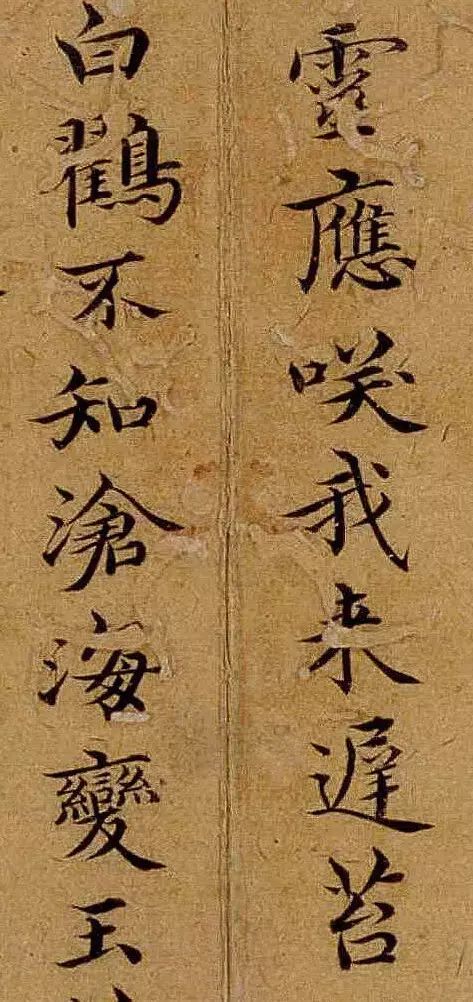 靈應咲我来遲苔
白鸖不知滄海變玉